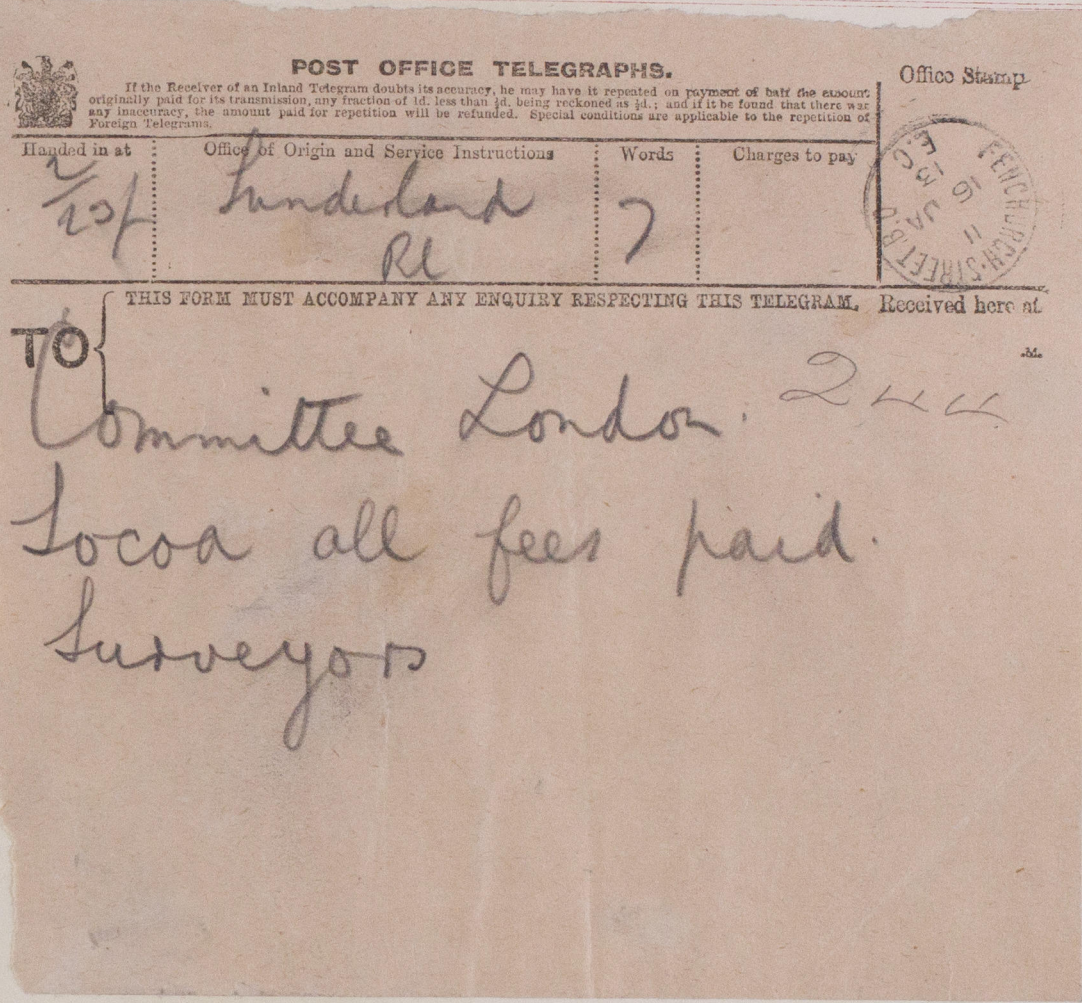 POST OFFICE TELEGRAPHS.
If the Receiver of an Inland Telegram doubts its accuracy, he may have it repeated on payment of half the amount
originally paid for its transmission, any fraction of 1d. less than ½d. being reckoned as ½d.; and if it be found that there was
any inaccuracy, the amount paid for repetition will be refunded. Special conditions are applicable to the repetition of
Foreign Telegrams.
Office Stamp
Handed in at
Office of Origin and Service Instructions
Words
Charges to pay
Sunderland
Rl
7
FENCHURCH-STREET.B.O
E.C.
16 JA 13
11
THIS FORM MUST ACCOMPANY ANY ENQUIRY RESPECTING THIS TELEGRAM.
Received here at
TO
.M.
Committee London.
Socoa all fees paid.
Surveyors